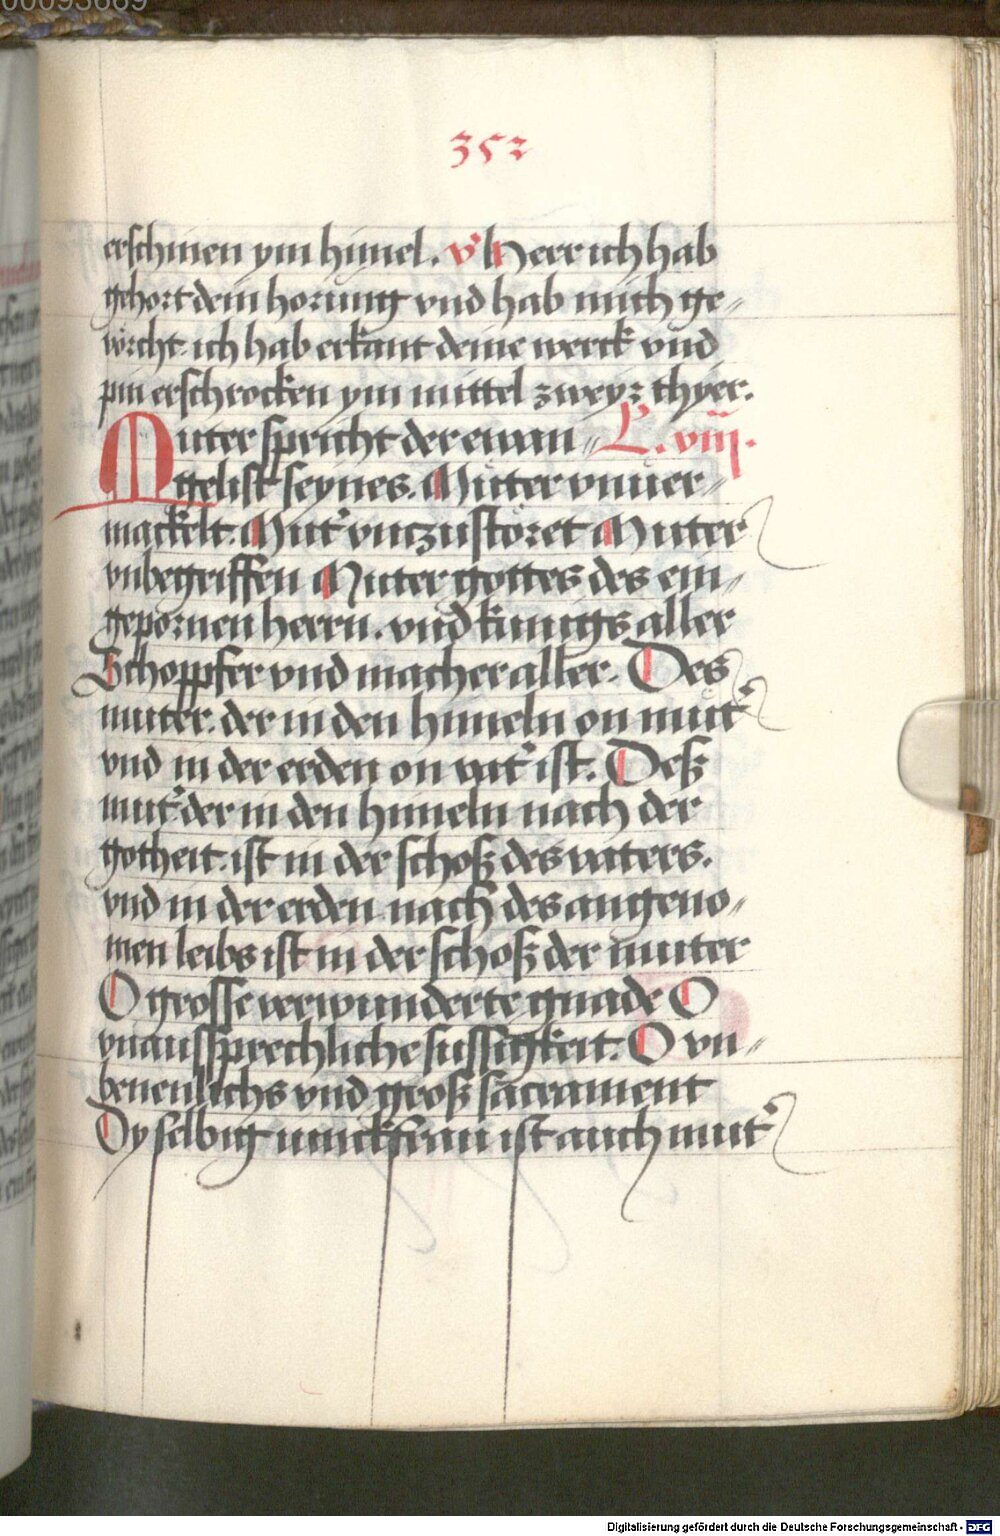 00093669
352
erschinen ym himel. v̾ Herr ich hab
gehort dein horung vnd hab mich ge„
vörcht. ich hab erkant deine werck vnd
pin erschrocken ym mittel zweyr thyer.
Muter spricht der ewan„ L. viii.
gelist seynes. Můter vnuer„
mackelt. Mut̾ vnczustöret Muter
vnbegriffen Muter gottes des ein„
gepornen herrn. vnd kunigs aller
Schoppfer vnd macher aller. Des
muter. der in den himeln on můt̾
vnd in der erden on vat̾ ist. Deß
mut̾ der in den himeln nach der
gotheit. ist in der schoß des vaters.
vnd in der erden nach des angeno„
men leibs ist in der schoß der muter
O grosse verwunderte gnade O
vnaussprechliche sussigkeit. O vn„
benenlichs vnd groß sacrament
Dy selbig iunckfrau ist auch mut̾
Digitalisierung gefördert durch die Deutsche Forschungsgemeinschaft - DFG